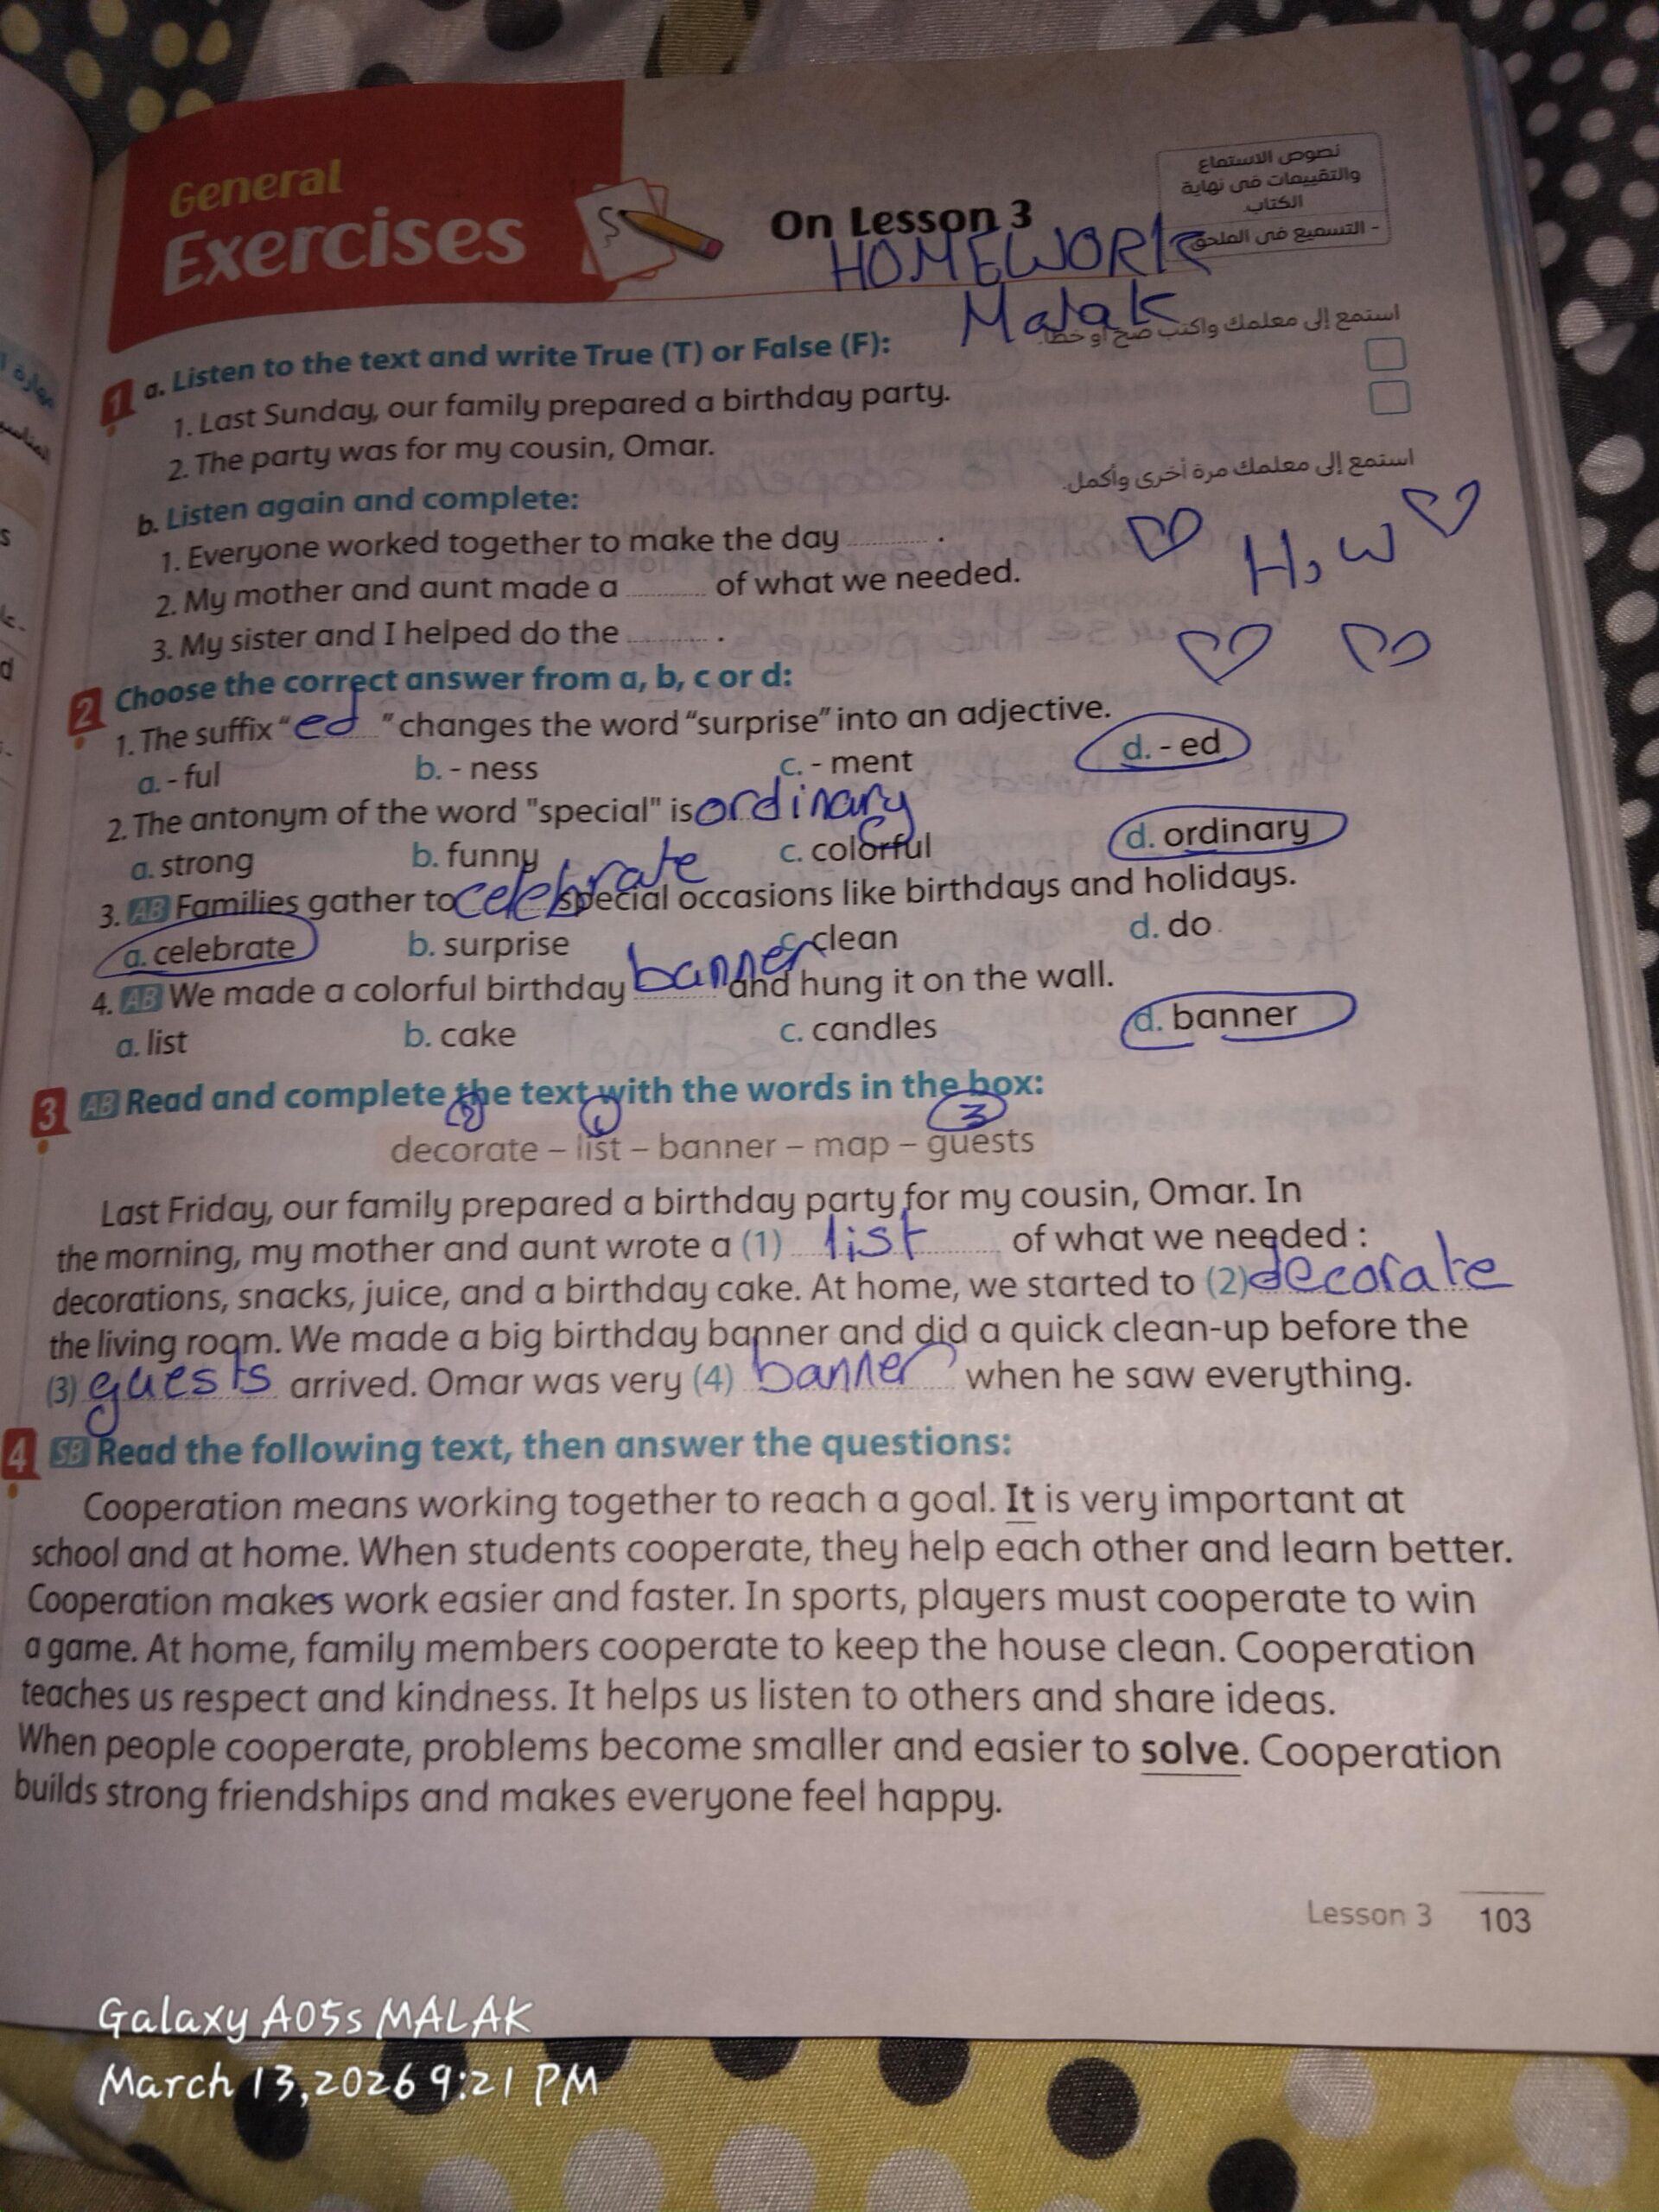 General
Exercises
On Lesson 3
نصوص الاستماع
والتقييمات في نهاية
الكتاب
- التسميع في الملحق
HOMEWORK
Malak
1 a. Listen to the text and write True (T) or False (F):
استمع إلى معلمك واكتب صح أو خطأ.
1. Last Sunday, our family prepared a birthday party.
2. The party was for my cousin, Omar.
b. Listen again and complete:
استمع إلى معلمك مرة أخرى وأكمل.
1. Everyone worked together to make the day .......... .
2. My mother and aunt made a .......... of what we needed.
3. My sister and I helped do the .......... .
H, W
2 Choose the correct answer from a, b, c or d:
1. The suffix " ed " changes the word "surprise" into an adjective.
a. - ful b. - ness c. - ment d. - ed
2. The antonym of the word "special" is ordinary
a. strong b. funny c. colorful d. ordinary
3. AB Families gather to celebrate special occasions like birthdays and holidays.
a. celebrate b. surprise c. clean d. do
4. AB We made a colorful birthday banner and hung it on the wall.
a. list b. cake c. candles d. banner
3 AB Read and complete the text with the words in the box:
3
decorate – list – banner – map – guests
Last Friday, our family prepared a birthday party for my cousin, Omar. In
the morning, my mother and aunt wrote a (1) list of what we needed :
decorations, snacks, juice, and a birthday cake. At home, we started to (2) decorate
the living room. We made a big birthday banner and did a quick clean-up before the
(3) guests arrived. Omar was very (4) banner when he saw everything.
4 SB Read the following text, then answer the questions:
Cooperation means working together to reach a goal. It is very important at
school and at home. When students cooperate, they help each other and learn better.
Cooperation makes work easier and faster. In sports, players must cooperate to win
a game. At home, family members cooperate to keep the house clean. Cooperation
teaches us respect and kindness. It helps us listen to others and share ideas.
When people cooperate, problems become smaller and easier to solve. Cooperation
builds strong friendships and makes everyone feel happy.
Lesson 3 103
Galaxy A05s MALAK
March 13,2026 9:21 PM